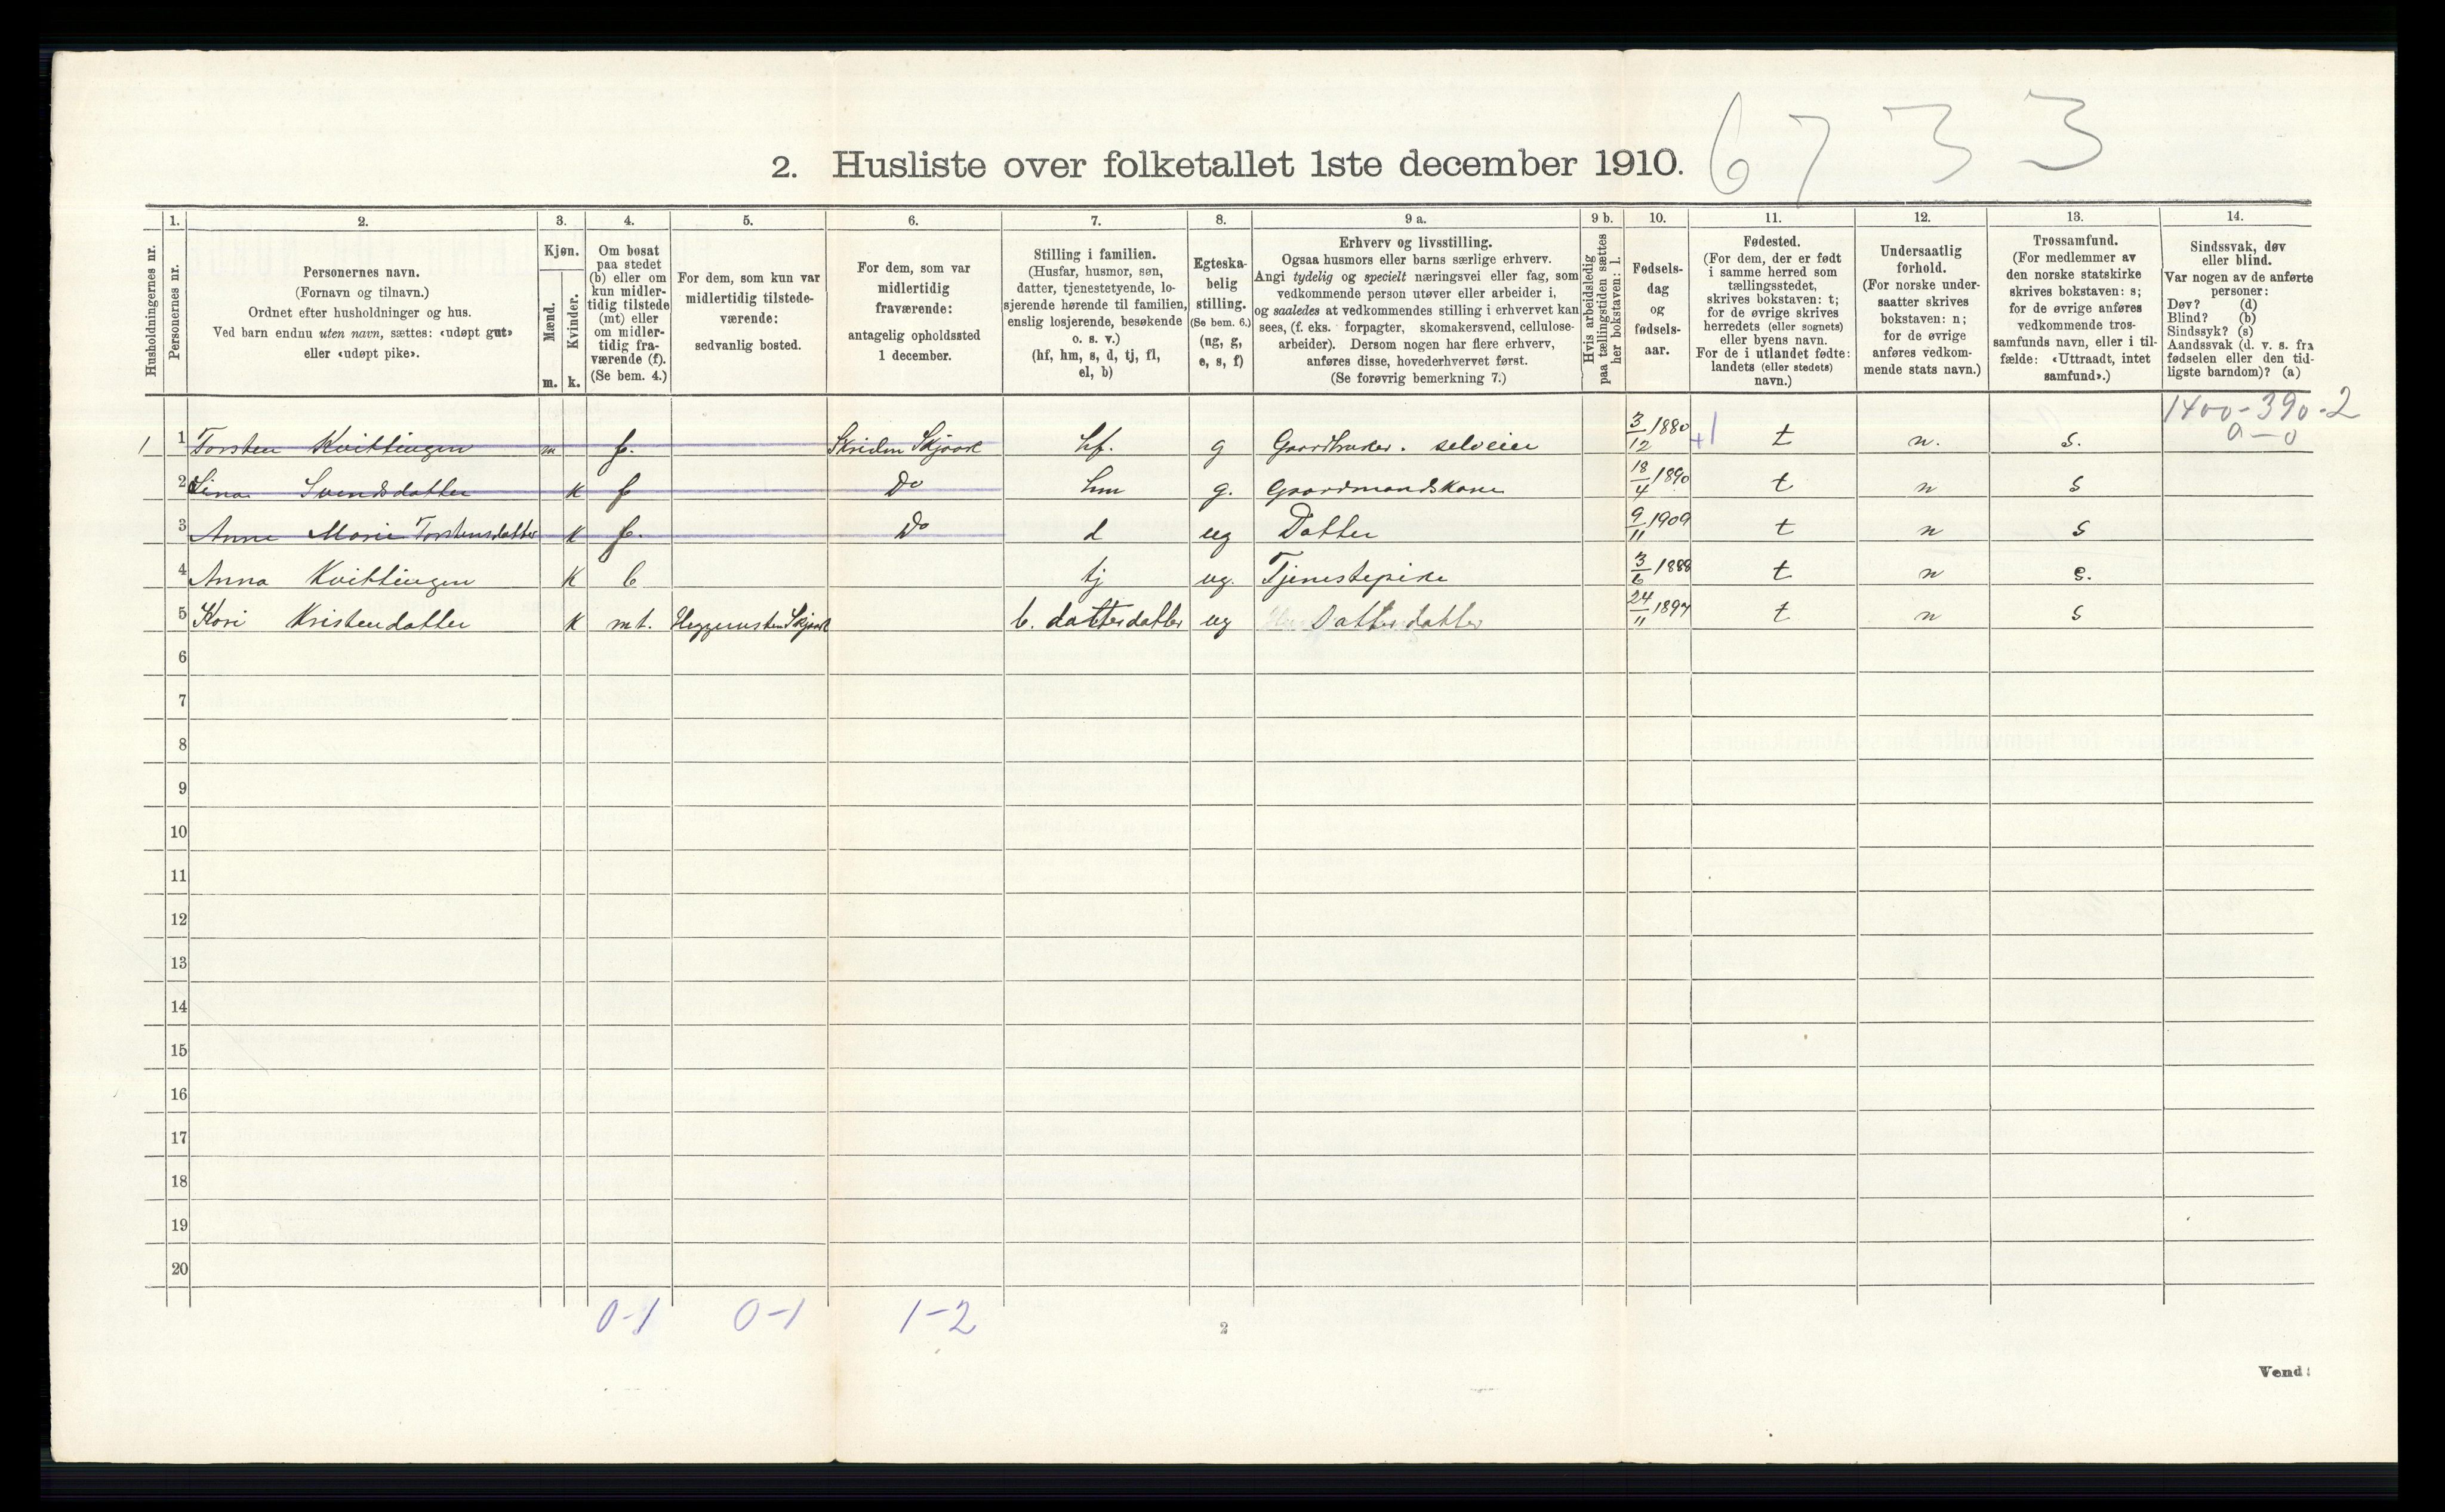 6733
2. Husliste over folketallet 1ste december 1910.
Husholdningernes nr.
1.
Personernes nr.
2.
Personernes navn.
(Fornavn og tilnavn.)
Ordnet efter husholdninger og hus.
Ved barn endnu uten navn, sættes: «udøpt gut»
eller «udøpt pike».
3.
Kjøn.
Mænd.
Kvinder.
m. k.
4.
Om bosat
paa stedet
(b) eller om
kun midler-
tidig tilstede
(mt) eller
om midler-
tidig fra-
værende (f).
(Se bem. 4.)
5.
For dem, som kun var
midlertidig tilstede-
værende:
sedvanlig bosted.
6.
For dem, som var
midlertidig
fraværende:
antagelig opholdssted
1 december.
7.
Stilling i familien.
(Husfar, husmor, søn,
datter, tjenestetyende, lo-
sjerende hørende til familien,
enslig losjerende, besøkende
o. s. v.)
(hf, hm, s, d, tj, fl,
el, b)
8.
Egteska-
belig
stilling.
(Se bem. 6.)
(ug, g,
e, s, f)
9 a.
Erhverv og livsstilling.
Ogsaa husmors eller barns særlige erhverv.
Angi tydelig og specielt næringsvei eller fag, som
vedkommende person utøver eller arbeider i,
og saaledes at vedkommendes stilling i erhvervet kan
sees, (f. eks. forpagter, skomakersvend, cellulose-
arbeider). Dersom nogen har flere erhverv,
anføres disse, hovederhvervet først.
(Se forøvrig bemerkning 7.)
9 b.
Hvis arbeidsledig
paa tællingstiden sættes
her bokstaven: l.
10.
Fødsels-
dag
og
fødsels-
aar.
11.
Fødested.
(For dem, der er født
i samme herred som
tællingsstedet,
skrives bokstaven: t;
for de øvrige skrives
herredets (eller sognets)
eller byens navn.
For de i utlandet fødte:
landets (eller stedets)
navn.)
12.
Undersaatlig
forhold.
(For norske under-
saatter skrives
bokstaven: n;
for de øvrige
anføres vedkom-
mende stats navn.)
13.
Trossamfund.
(For medlemmer av
den norske statskirke
skrives bokstaven: s;
for de øvrige anføres
vedkommende tros-
samfunds navn, eller i til-
fælde: «Uttraadt, intet
samfund».)
14.
Sindssvak, døv
eller blind.
Var nogen av de anførte
personer:
Døv? (d)
Blind? (b)
Sindssyk? (s)
Aandssvak (d. v. s. fra
fødselen eller den tid-
ligste barndom)? (a)
1400-390-2
0-0
1 1 Torsten Kvittingen m f. Skriden Skjaak hf. g Gaardbruker. selveier 3/12 1880 +1 t n. s.
2 Sina Svendsdatter k f Do hm g. Gaardmandskone 18/4 1890 t n s
3 Anne Marie Torstensdatter k f. Do d ug Datter 9/11 1909 t n s
4 Anna Kvittingen k b tj ug. Tjenestepike 3/6 1888 t n s.
5 Kari Kristendatter k mt. Heggernsten Skjaak b. datterdatter ug Datterdatter 24/11 1897 t n s
6
7
8
9
10
11
12
13
14
15
16
17
18
19
20
0-1 0-1 1-2
2
Vend!